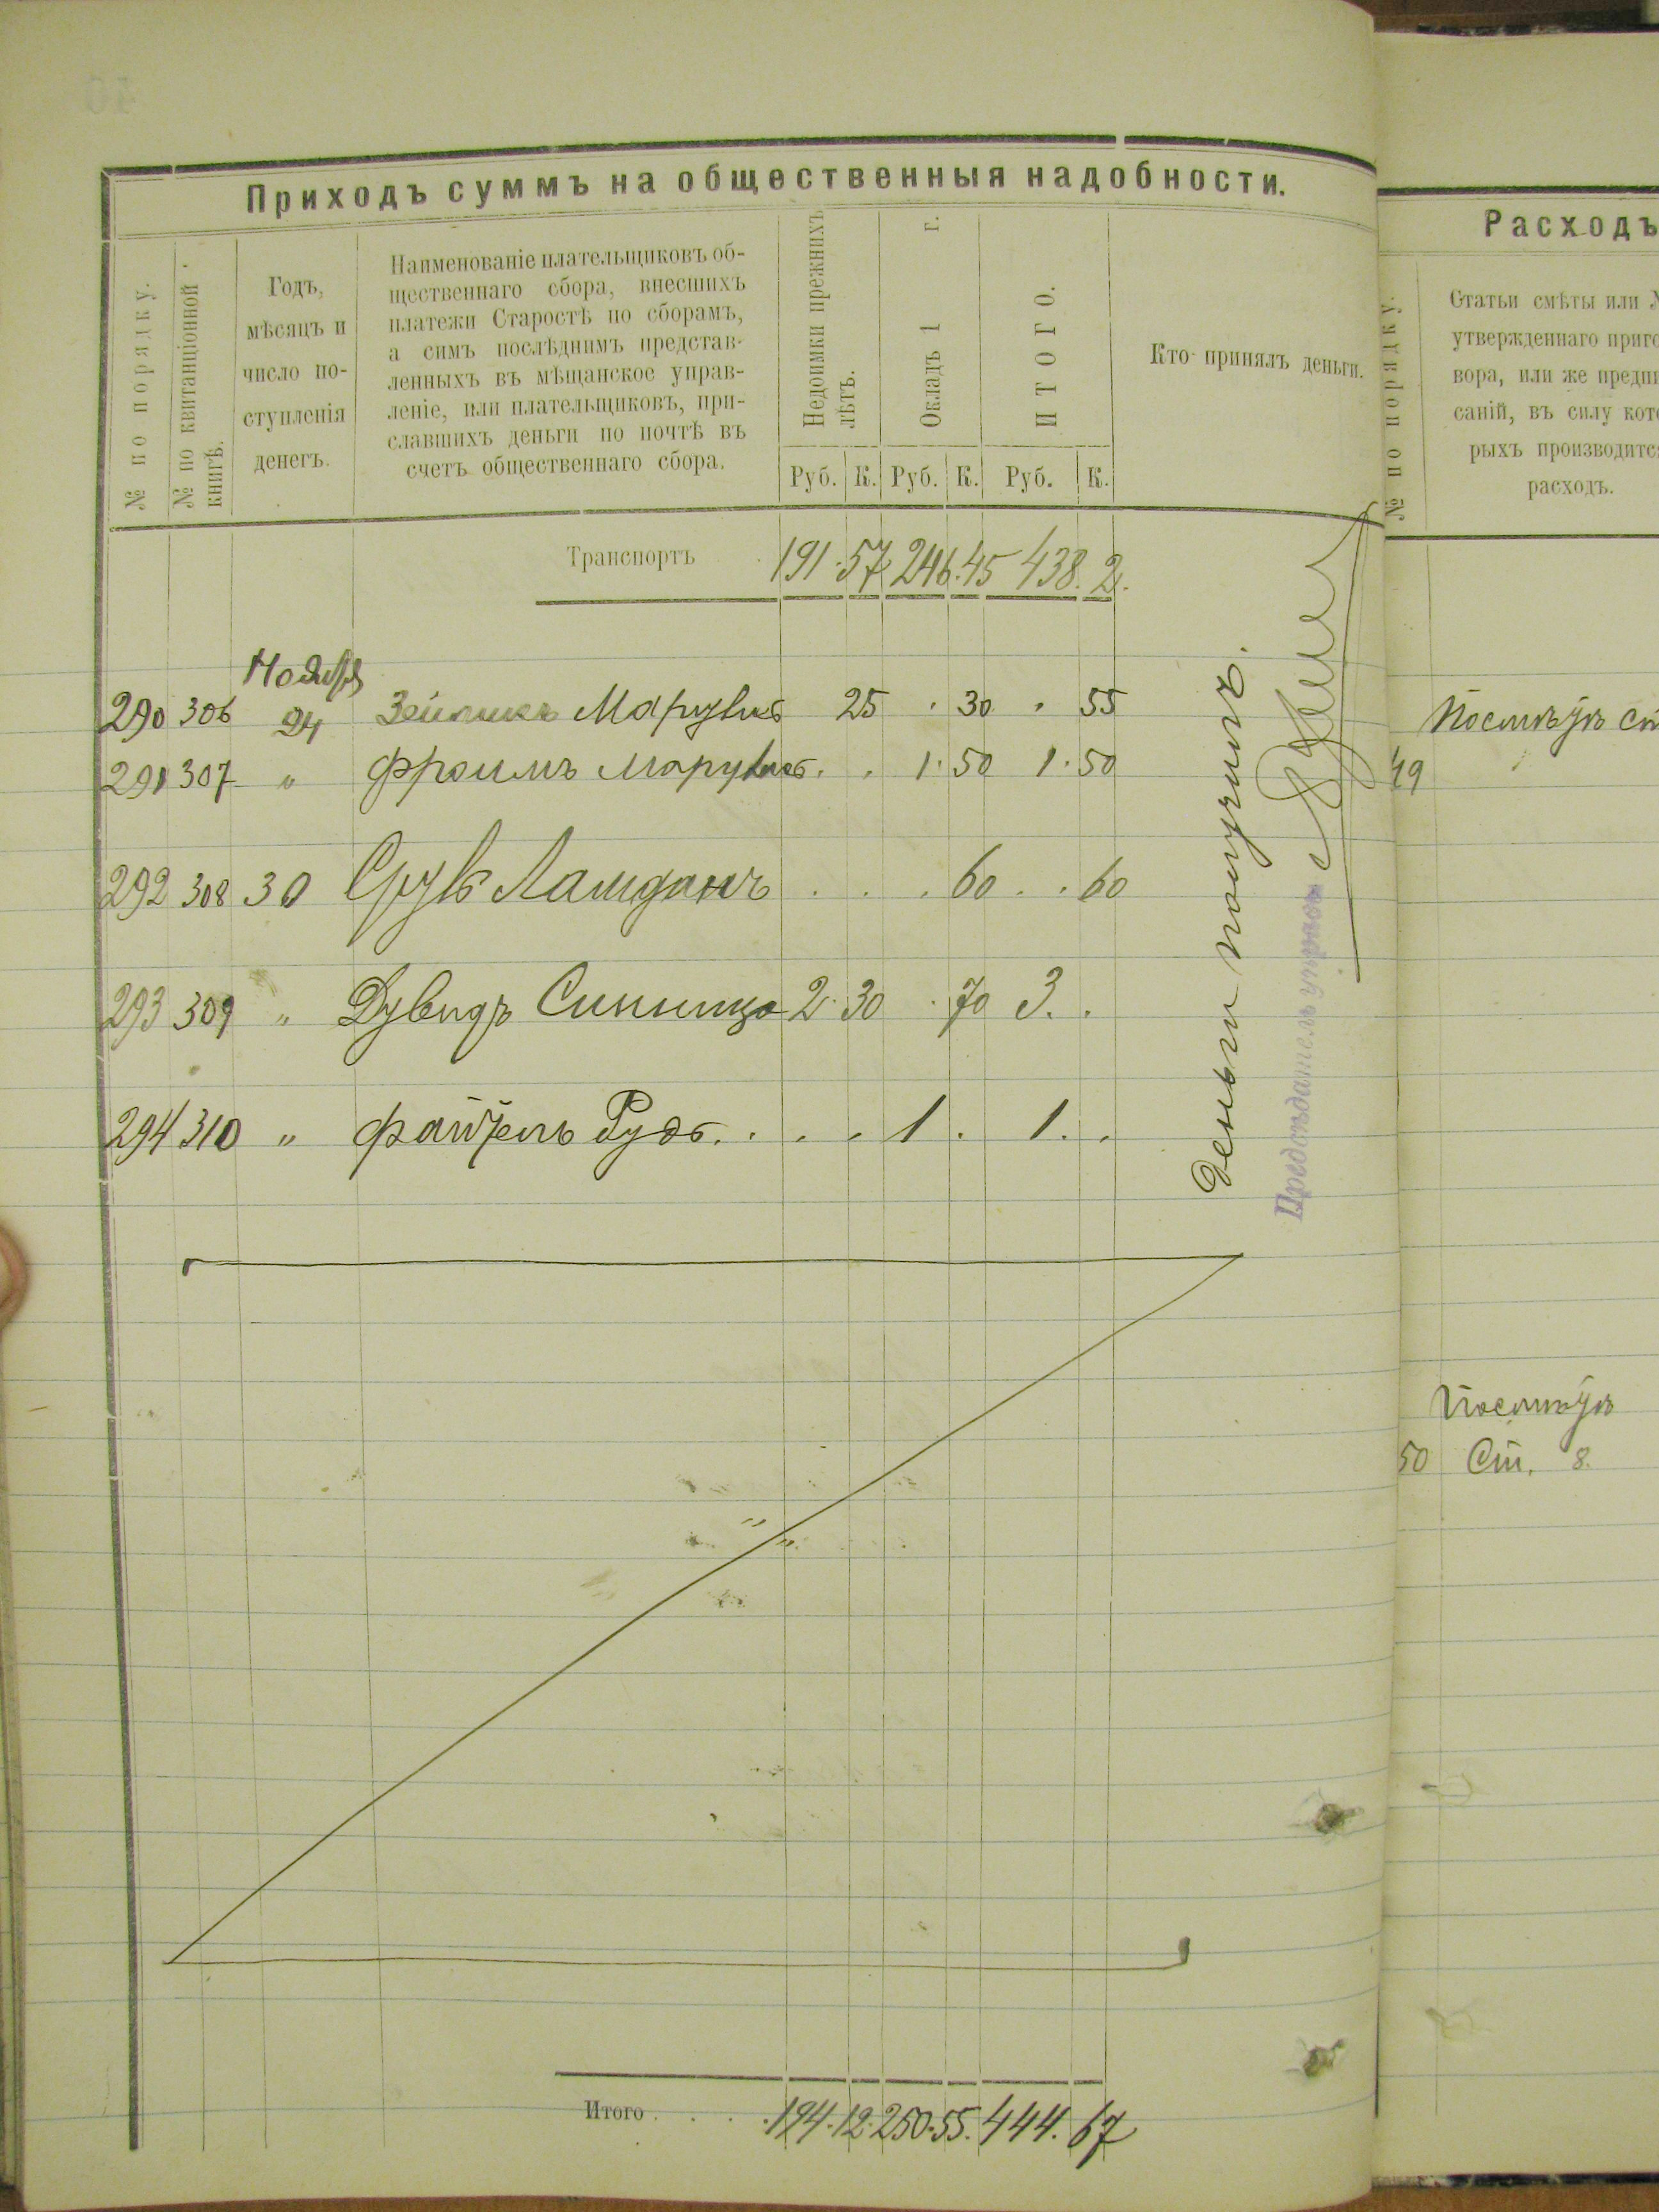 Приходъ суммъ на общественныя надобности.
№ по порядку.
№ по квитанціонной
книгѣ.
Годъ,
мѣсяцъ и
число по-
ступленія
денегъ.
Наименованіе плательщиковъ об-
щественнаго сбора, внесшихъ
платежи Старостѣ по сборамъ,
а симъ послѣднимъ представ-
ленныхъ въ мѣщанское управ-
леніе, или плательщиковъ, при-
славшихъ деньги по почтѣ въ
счетъ общественнаго сбора.
Недоимки прежнихъ
лѣтъ.
Окладъ 1 г.
ИТОГО.
Кто принялъ деньги.
Руб. К. Руб. К. Руб. К.
Транспортъ 191 57 246 45 438 2
Ноября
290 306 24 25 30 55
291 307 " Фроимъ 1 50 1 50
292 308 30 60 60
293 309 " Дувидъ Синица 2 30 70 3
294 310 " 1 1
Деньги получилъ.
Предсѣдатель управы
Итого 194 12 250 55 444 67
Расходъ
№ по порядку.
Статьи смѣты или
утвержденнаго приго
вора, или же предпи
саній, въ силу кото
рыхъ производится
расходъ.
49
50 Ст. 8.